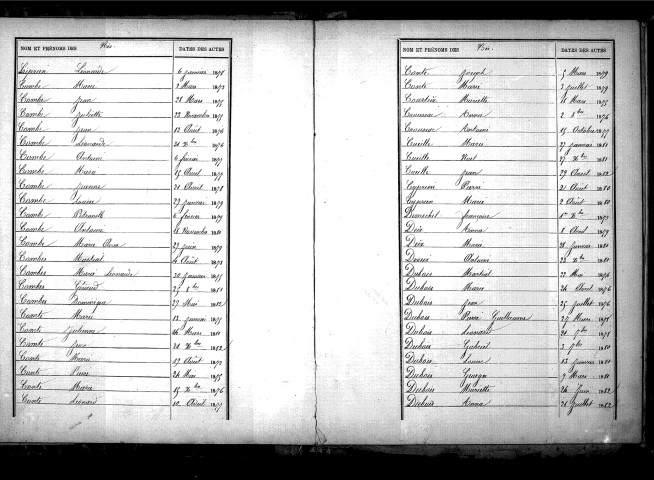 NOM ET PRÉNOMS DES Nés. DATES DES ACTES
Cyprien Léonarde 6 janvier 1878
Combe Marie 2 Mars 1873
Combe Jean 28 Mars 1875
Combe Juliette 23 Novembre 1875
Combe Jean 12 Août 1876
Combe Léonarde 21 Xbre 1876
Combe Antoine 6 février 1877
Combe Maria 15 Avril 1877
Combe Jeanne 21 Avril 1878
Combe Louise 29 janvier 1879
Combe Pétronille 6 février 1879
Combe Antoine 18 Novembre 1880
Combe Marie Anna 29 juin 1879
Combes Martial 4 Août 1878
Combes Maria Léonarde 30 janvier 1875
Combes 25 1881
Combes Dominique 27 Mai 1882
Comte Marie 12 janvier 1875
Comte 24 Mars 1880
Comte Jean 21 Xbre 1882
Comte Maria 19 Août 1873
Comte Pierre 24 Mai 1875
Comte Maria 15 Xbre 1876
Comte Léonard 10 Août 1877
NOM ET PRÉNOMS DES Nés. DATES DES ACTES
Conte Joseph 5 Mars 1879
Conte Marie 3 juillet 1879
Mariette 18 Mars 1875
Anna 2 1876
Antoine 15 Octobre 1877
Cueille Marie 27 janvier 1881
Cueille Noël 27 Xbre 1881
Cueille Jean 29 Avril 1882
Cyprien Pierre 21 Avril 1880
Cyprien Marie 2 Août 1880
Demichel Françoise 1er Xbre 1873
Deix Anna 8 Avril 1879
Deix Maria 28 janvier 1880
Antoine 23 Xbre 1880
Dubois Martial 22 Mai 1876
Dubois Marie 24 Avril 1876
Dubois Jean 25 juillet 1876
Dubois Pierre Guillaume 27 Mars 1878
Dubois Léonard 24 7bre 1878
Dubois Gabriel 3 7bre 1880
Dubois Louise 13 janvier 1880
Dubois 9 Mars 1880
Dubois Mariette 24 Juin 1882
Dubois Anna 26 Juillet 1882